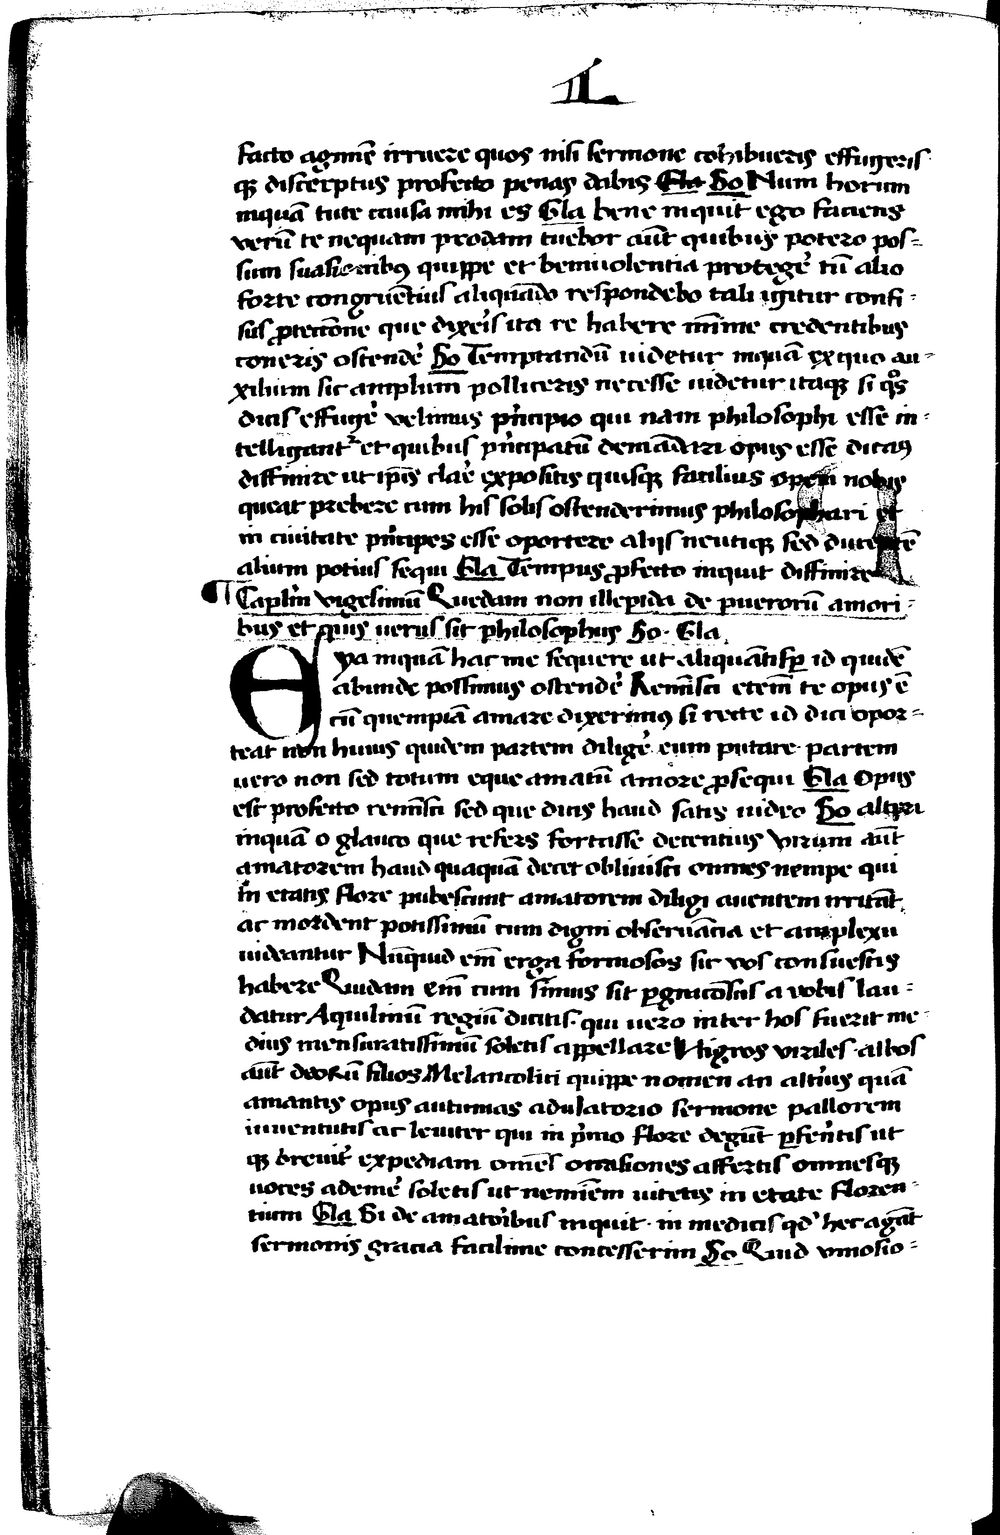 L
facto agmīe irruere quos nisi sermone cohibueris effugeris
qꝫ discerptus profecto penas dabis Gla So Num horum
inquā tute causa mihi es Gla bene inquit ego faciens
verū te nequam prodam tuebor aūt quibus potero pos=
sum suasionibꝰ quippe et beniuolentia protegē tū alio
forte congruētius aliquādo respondebo tali igitur confi=
sus ꝓtectiōne que dixeris ita re habere mīme credentibus
coneris ostendē So Temptandū uidetur inquā ex quo au=
xilium sic amplum polliceris necesse uidetur itaqꝫ si qᵒs
dicis effugē velimus pⁱncipio qui nam philosophi esse in=
telligantᷣ et quibus pⁱncipatū demādari opus esse dicaꝰ
diffinire ut ipīs clarē expositis quisqꝫ facilius opem nobis
queat prebere cum his solis ostenderimus philosophari et
in ciuitate pⁱncipes esse oportere alijs neutiqꝫ sed ducentē
alium potius sequi Gla Tempus ꝓfecto inquit diffinire
¶ Capl'm vigesimū Quedam non illepida de puerorū amori=
bus et quis uerus sit philosophus So. Gla.
Eya inquā hac me sequere ut aliquātisꝑ id quidē
abunde possimus ostendē Remīsci etenī te opus ē
cū quempiā amare dixerimꝰ si recte id dici opor=
teat non huius quidem partem diligē eum putare partem
uero non sed totum eque amatū amore ꝓsequi Gla Opus
est profecto remīsci sed que dicis haud satis uideo So alteri
inquā o glauco que refers fortasse decentius virum aūt
amatorem haud quaquā decet obliuisci omnes nempe qui
in etatis flore pubescunt amatorem diligi auentem irritāt
ac mordent potissimū cum digni obseruācia et amplexu
uideantur Nūquid enī erga formosos sic vos consuestis
habere Quidam enī cum simus sit ꝑgraciōsus a vobis lau=
datur Aquilinū regiū dicitis. qui uero inter hos fuerit me=
dius mensuratissimū soletis appellare Nigros viriles albos
aūt deorū filios Melancolici quippe nomen an altⁱus quā
amantis opus autumas adulatorio sermone pallorem
iuuentutis ac leuiter qui in pⁱmo flore degūt ꝑferētis ut
qꝫ breuit expediam omēs occasiones affertis omnesqꝫ
uoces ademē soletis ut neminem uitetis in etate floren=
tium Gla Si de amatoribus inquit. in me dicis qd' hec agāt
sermonis gracia facilime concesserim So Quid vinosio=